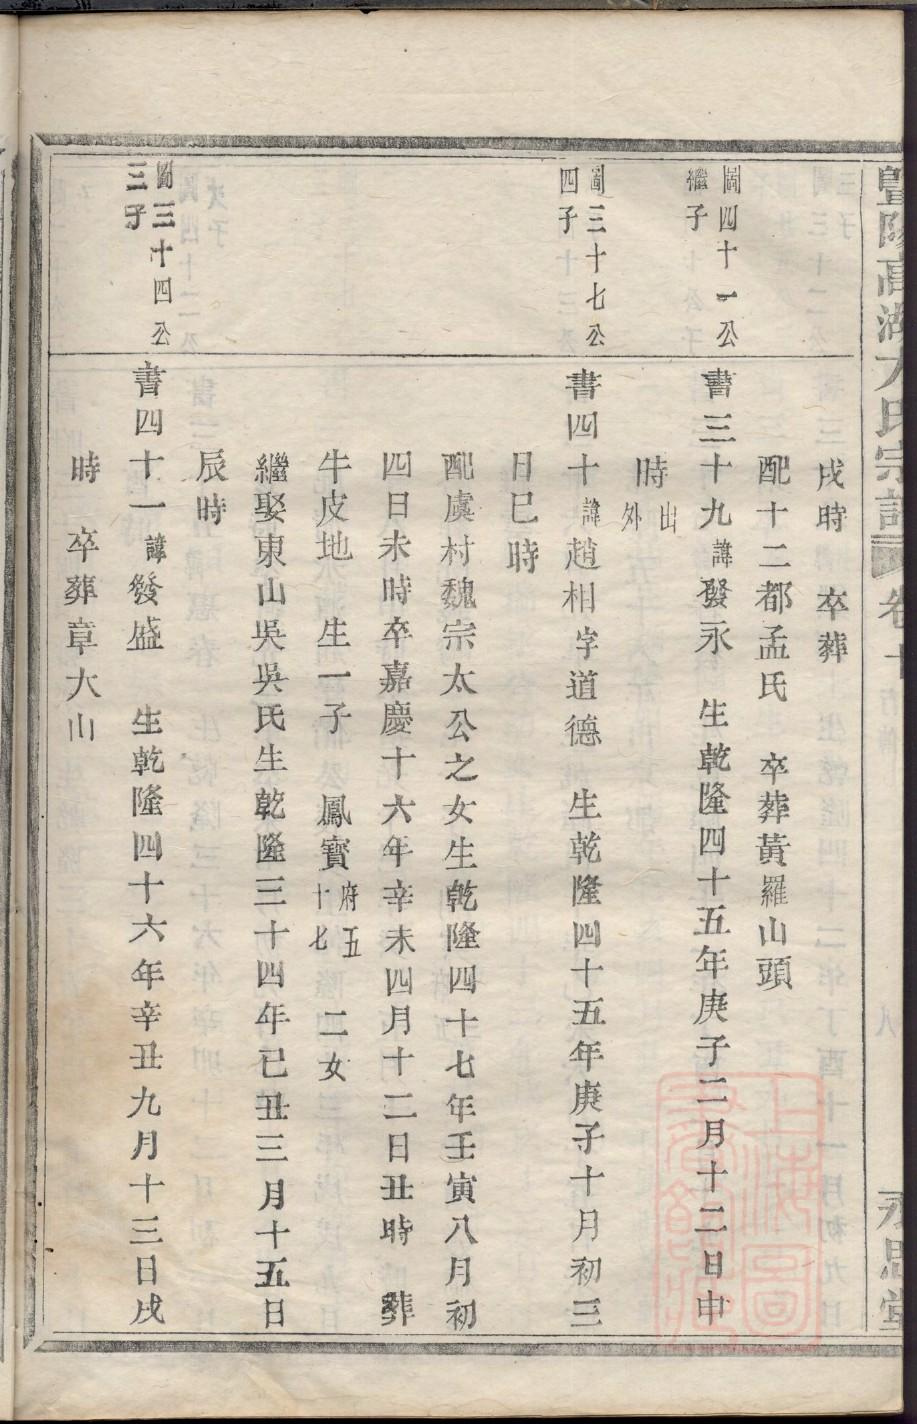 暨陽高湖方氏宗譜 卷十 行傳 八 永思堂
戌時 卒葬
配十二都孟氏 卒葬黃羅山頭
圖四十一公繼子
書三十九諱發永 生乾隆四十五年庚子二月十二日申
時出外
圖三十七公四子
書四十諱趙相字道德 生乾隆四十五年庚子十月初三
日巳時
配虞村魏宗太公之女生乾隆四十七年壬寅八月初
四日未時卒嘉慶十六年辛未四月十二日丑時 葬
牛皮地 生一子 鳳寶府五十七 二女
繼娶東山吳吳氏生乾隆三十四年己丑三月十五日
辰時
圖三十四公三子
書四十一諱發盛 生乾隆四十六年辛丑九月十三日戌
時 卒葬章大山